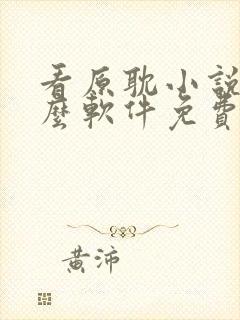 看原耽小說
麼軟件免費
黃沛